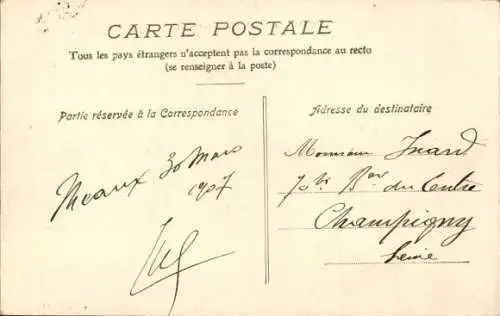 CARTE POSTALE
Tous les pays étrangers n'acceptent pas la correspondance au recto
(se renseigner à la poste)
Partie réservée à la Correspondance
Meaux 30 Mars
1907
Adresse du destinataire
Monsieur
70 bis Bard du Centre
Champigny
Seine